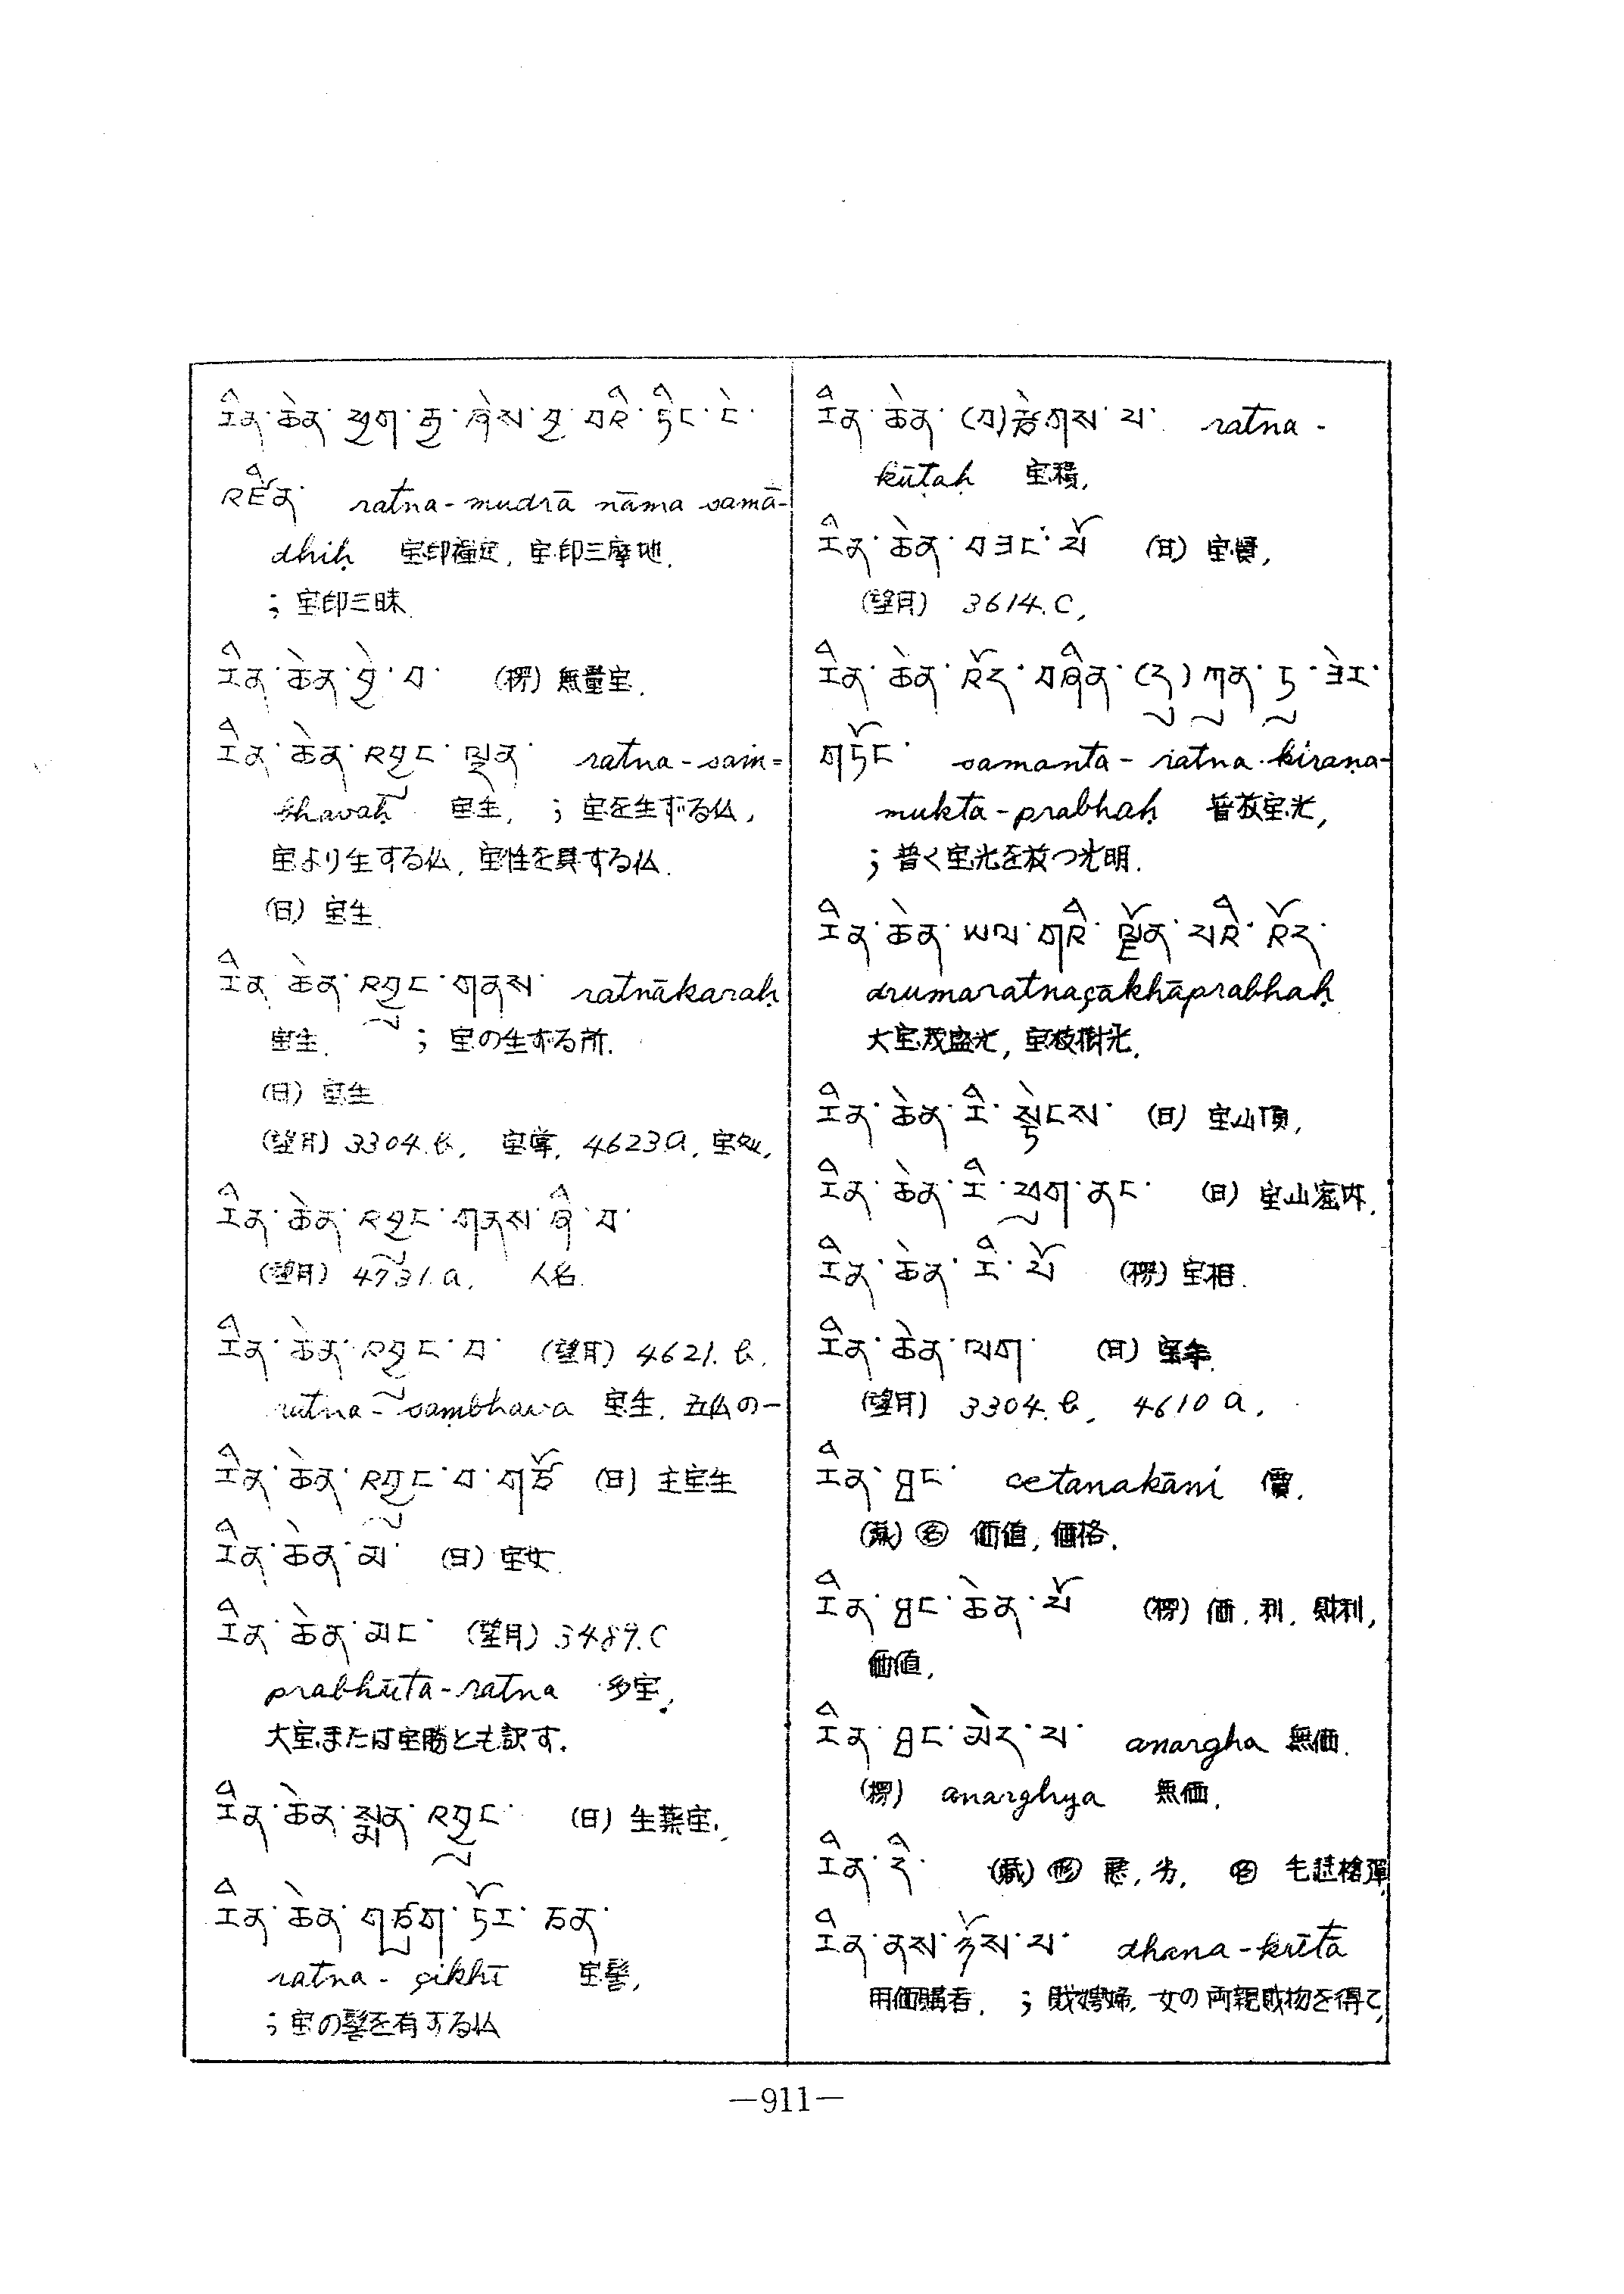 རིན་ཆེན་ཕྱག་རྒྱ་ཞེས་བྱ་བའི་ཏིང་ངེ་
འཛིན་ ratna-mudrā nāma samā-
dhiḥ 宝印禅定, 宝印三摩地.
; 宝印三昧.
རིན་ཆེན་བྱེ་བ་ (楞) 無量宝.
རིན་ཆེན་འབྱུང་ལྡན་ ratna-saṁ=
bhavaḥ 宝生, ; 宝を生ずる仏,
宝より生する仏, 宝性を具する仏.
(日) 宝生.
རིན་ཆེན་འབྱུང་གནས་ ratnākaraḥ
宝生. ; 宝の生ずる所.
(日) 宝生
(望月) 3304.b, 宝掌, 4623a, 宝処,
རིན་ཆེན་འབྱུང་གནས་ཞི་བ་
(望月) 4731.a, 人名.
རིན་ཆེན་འབྱུང་བ་ (望月) 4621.b,
ratna-saṃbhava 宝生, 五仏の一
རིན་ཆེན་འབྱུང་བ་གཙོ (日) 主宝生
རིན་ཆེན་མ་ (日) 宝女.
རིན་ཆེན་མང་ (望月) 3489.C
prabhūta-ratna 多宝,
大宝または宝勝とも訳す.
རིན་ཆེན་སྨན་འབྱུང་ (日) 生薬宝,
རིན་ཆེན་གཙུག་ཏོར་ཅན་
ratna-çikhī 宝髻,
; 宝の髻を有する仏
རིན་ཆེན་(བ)རྩེགས་པ་ ratna-
kūṭaḥ 宝積,
རིན་ཆེན་བཟང་པོ (日) 宝賢,
(望月) 3614.C,
རིན་ཆེན་འོད་བཞིན་(དུ)ཀུན་ཏུ་ཟེར་
གཏོང་ samanta-ratna-kiraṇa-
mukta-prabhaḥ 普放宝光,
; 普く宝光を放つ光明.
རིན་ཆེན་ཡལ་གའི་ལྗོན་པའི་འོད་
drumaratnaçākhāprabhaḥ
大宝茂盛光, 宝枝樹光,
རིན་ཆེན་རི་སྟེངས་ (日) 宝山頂,
རིན་ཆེན་རི་ཕུག་ནང་ (日) 宝山窟内,
རིན་ཆེན་རི་པོ (楞) 宝相.
རིན་ཆེན་ལག་ (日) 宝手,
(望月) 3304.b, 4610a,
རིན་ཐང་ cetanakāni 價,
(蔵) 名 価値, 価格,
རིན་ཐང་ཆེན་པོ (楞) 価, 利, 財利,
価値,
རིན་ཐང་མེད་པ་ anargha 無価.
(楞) anarghya 無価,
རིན་དི་ (蔵) 形 悪, 劣, 名 毛瑟槍弾
རིན་ནས་ཉོས་པ་ dhana-krītā
用価購者, ; 財娉婦, 女の両親財物を得て,
—911—